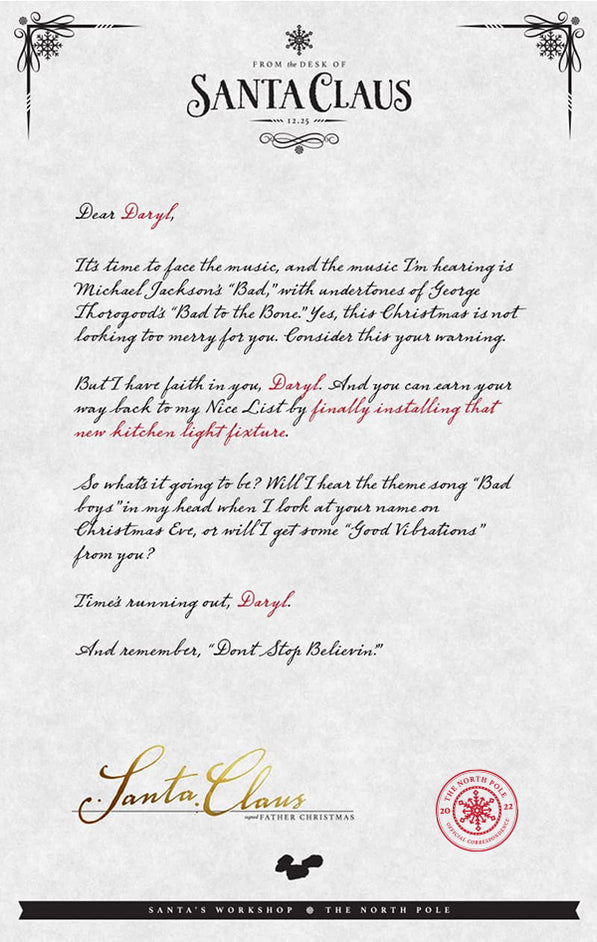 FROM the DESK OF
SANTA CLAUS
12.25
Dear Daryl,
It's time to face the music, and the music I'm hearing is
Michael Jackson's "Bad," with undertones of George
Thorogood's "Bad to the Bone." Yes, this Christmas is not
looking too merry for you. Consider this your warning.
But I have faith in you, Daryl. And you can earn your
way back to my Nice List by finally installing that
new kitchen light fixture.
So what's it going to be? Will I hear the theme song "Bad
boys" in my head when I look at your name on
Christmas Eve, or will I get some "Good Vibrations"
from you?
Time's running out, Daryl.
And remember, "Don't Stop Believin'."
Santa Claus
signed FATHER CHRISTMAS
THE NORTH POLE
20 22
OFFICIAL CORRESPONDENCE
SANTA'S WORKSHOP THE NORTH POLE